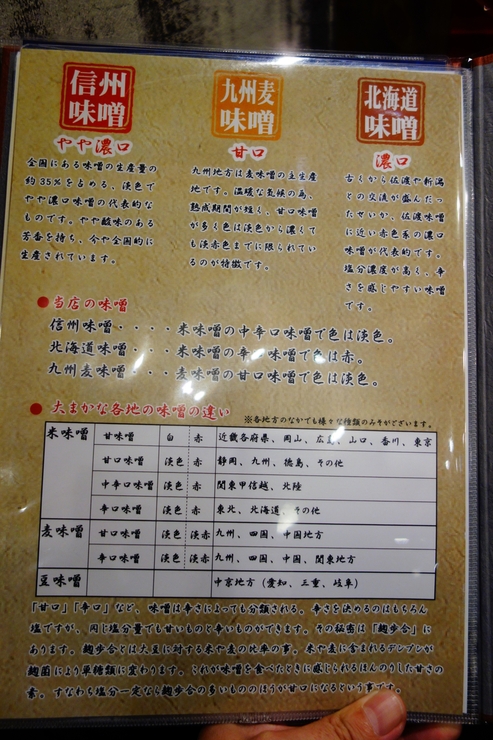 信州
味噌
やや濃口
全国にある味噌の生産量の
約35％を占める、淡色で
やや濃口味噌の代表的な
ものです。やや酸味のある
芳香を持ち、今や全国的に
生産されています。
九州麦
味噌
甘口
九州地方は麦味噌の主生産
地です。温暖な気候の為、
熟成期間が短く、甘口味噌
が多く色は淡色から濃くて
も淡赤色までに限られてい
るのが特徴です。
北海道
味噌
濃口
古くから佐渡や新潟
との交流が盛んだっ
たせいか、佐渡味噌
に近い赤色系の濃口
味噌が代表的です。
塩分濃度が高く、辛
さを感じやすい味噌
です。
●当店の味噌
信州味噌・・・・米味噌の中辛口味噌で色は淡色。
北海道味噌・・・米味噌の辛口味噌で色は赤。
九州麦味噌・・・麦味噌の甘口味噌で色は淡色。
●大まかな各地の味噌の違い
※各地方のなかでも様々な種類のみそがございます。
米味噌 甘味噌 白 赤 近畿各府県、岡山、広島、山口、香川、東京
甘口味噌 淡色 赤 静岡、九州、徳島、その他
中辛口味噌 淡色 赤 関東甲信越、北陸
辛口味噌 淡色 赤 東北、北海道、その他
麦味噌 甘口味噌 淡色 淡赤 九州、四国、中国地方
辛口味噌 淡色 淡赤 九州、四国、中国、関東地方
豆味噌 中京地方（愛知、三重、岐阜）
「甘口」「辛口」など、味噌は辛さによっても分類される。辛さを決めるのはもちろん
塩ですが、同じ塩分量でも甘いものと辛いものができます。その秘密は「麹歩合」に
あります。麹歩合とは大豆に対する米や麦の比率の事。米や麦に含まれるデンプンが
麹菌により単糖類に変わります。これが味噌を食べたときに感じられるほんのりした甘さの
素。すなわち塩分一定なら麹歩合の多いもののほうが甘口になるという事です。